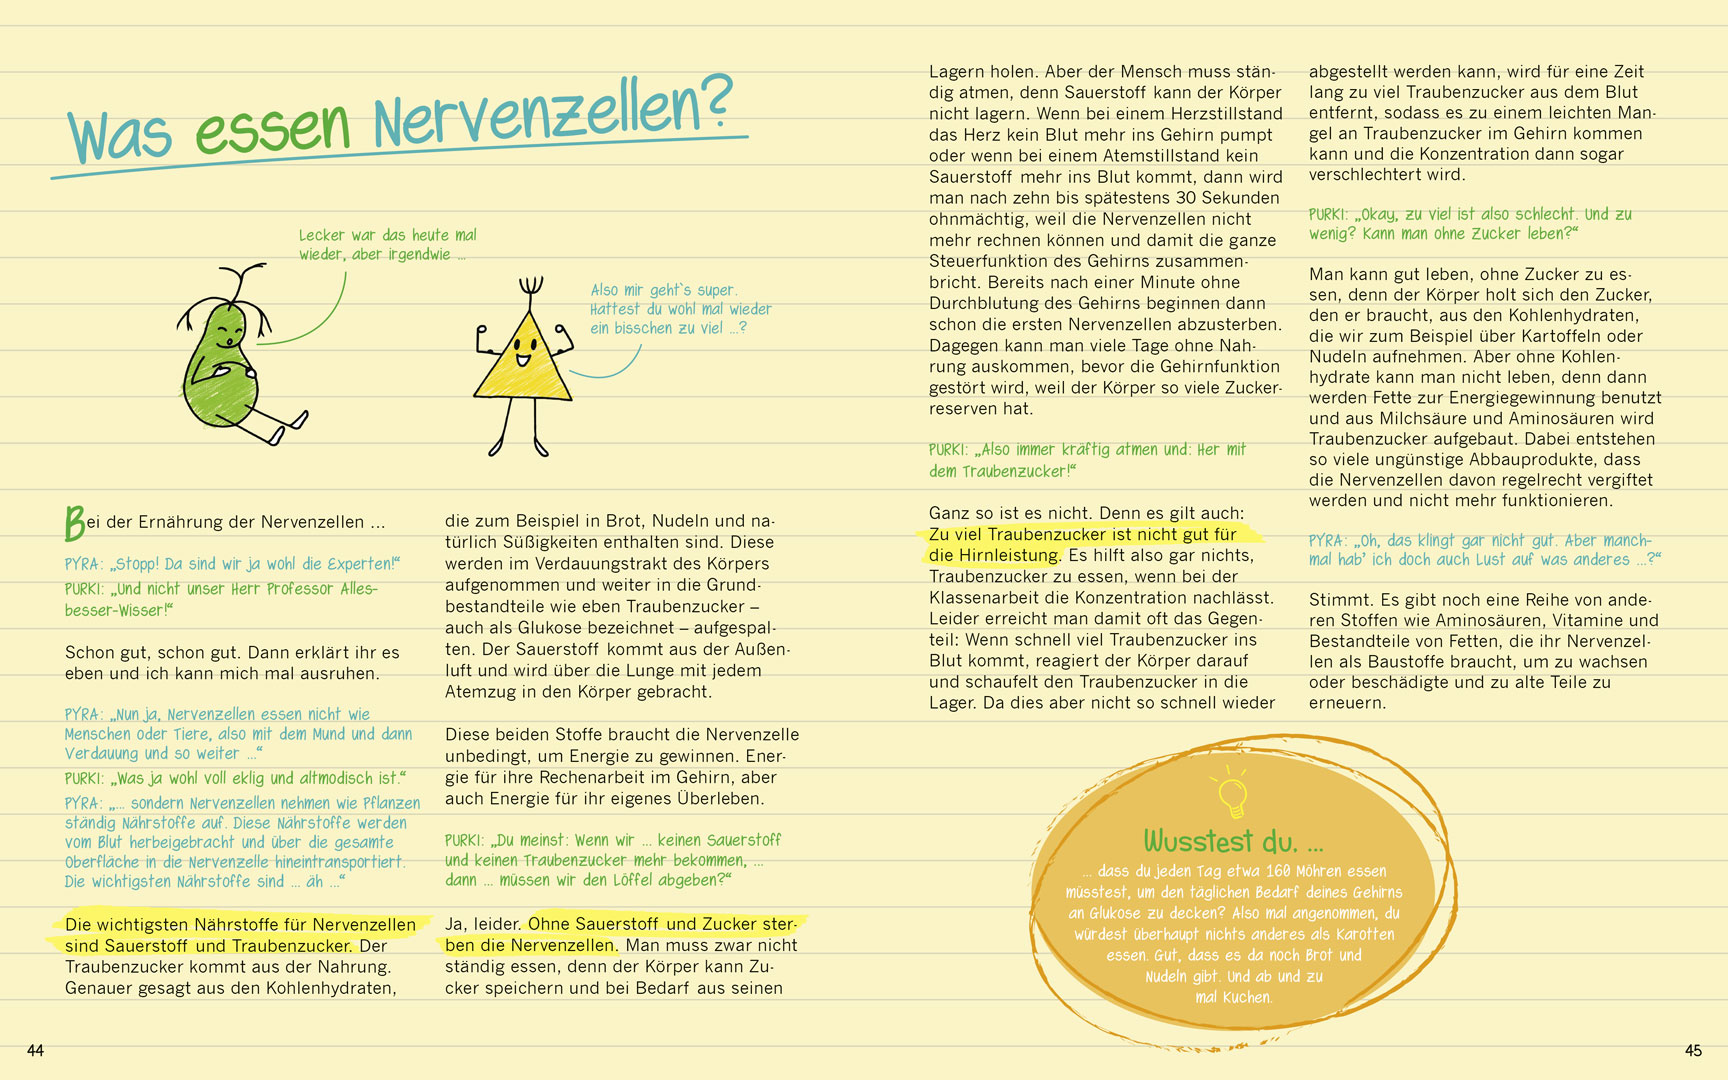 Was essen Nervenzellen?
Lecker war das heute mal
wieder, aber irgendwie ...
Also mir geht`s super.
Hattest du wohl mal wieder
ein bisschen zu viel ...?
Bei der Ernährung der Nervenzellen ...
PYRA: „Stopp! Da sind wir ja wohl die Experten!“
PURKI: „Und nicht unser Herr Professor Alles-
besser-Wisser!“
Schon gut, schon gut. Dann erklärt ihr es
eben und ich kann mich mal ausruhen.
PYRA: „Nun ja, Nervenzellen essen nicht wie
Menschen oder Tiere, also mit dem Mund und dann
Verdauung und so weiter ...“
PURKI: „Was ja wohl voll eklig und altmodisch ist.“
PYRA: „... sondern Nervenzellen nehmen wie Pflanzen
ständig Nährstoffe auf. Diese Nährstoffe werden
vom Blut herbeigebracht und über die gesamte
Oberfläche in die Nervenzelle hineintransportiert.
Die wichtigsten Nährstoffe sind ... äh ...“
Die wichtigsten Nährstoffe für Nervenzellen
sind Sauerstoff und Traubenzucker. Der
Traubenzucker kommt aus der Nahrung.
Genauer gesagt aus den Kohlenhydraten,
die zum Beispiel in Brot, Nudeln und na-
türlich Süßigkeiten enthalten sind. Diese
werden im Verdauungstrakt des Körpers
aufgenommen und weiter in die Grund-
bestandteile wie eben Traubenzucker –
auch als Glukose bezeichnet – aufgespal-
ten. Der Sauerstoff kommt aus der Außen-
luft und wird über die Lunge mit jedem
Atemzug in den Körper gebracht.
Diese beiden Stoffe braucht die Nervenzelle
unbedingt, um Energie zu gewinnen. Ener-
gie für ihre Rechenarbeit im Gehirn, aber
auch Energie für ihr eigenes Überleben.
PURKI: „Du meinst: Wenn wir ... keinen Sauerstoff
und keinen Traubenzucker mehr bekommen, ...
dann ... müssen wir den Löffel abgeben?“
Ja, leider. Ohne Sauerstoff und Zucker ster-
ben die Nervenzellen. Man muss zwar nicht
ständig essen, denn der Körper kann Zu-
cker speichern und bei Bedarf aus seinen
44
Lagern holen. Aber der Mensch muss stän-
dig atmen, denn Sauerstoff kann der Körper
nicht lagern. Wenn bei einem Herzstillstand
das Herz kein Blut mehr ins Gehirn pumpt
oder wenn bei einem Atemstillstand kein
Sauerstoff mehr ins Blut kommt, dann wird
man nach zehn bis spätestens 30 Sekunden
ohnmächtig, weil die Nervenzellen nicht
mehr rechnen können und damit die ganze
Steuerfunktion des Gehirns zusammen-
bricht. Bereits nach einer Minute ohne
Durchblutung des Gehirns beginnen dann
schon die ersten Nervenzellen abzusterben.
Dagegen kann man viele Tage ohne Nah-
rung auskommen, bevor die Gehirnfunktion
gestört wird, weil der Körper so viele Zucker-
reserven hat.
PURKI: „Also immer kräftig atmen und: Her mit
dem Traubenzucker!“
Ganz so ist es nicht. Denn es gilt auch:
Zu viel Traubenzucker ist nicht gut für
die Hirnleistung. Es hilft also gar nichts,
Traubenzucker zu essen, wenn bei der
Klassenarbeit die Konzentration nachlässt.
Leider erreicht man damit oft das Gegen-
teil: Wenn schnell viel Traubenzucker ins
Blut kommt, reagiert der Körper darauf
und schaufelt den Traubenzucker in die
Lager. Da dies aber nicht so schnell wieder
abgestellt werden kann, wird für eine Zeit
lang zu viel Traubenzucker aus dem Blut
entfernt, sodass es zu einem leichten Man-
gel an Traubenzucker im Gehirn kommen
kann und die Konzentration dann sogar
verschlechtert wird.
PURKI: „Okay, zu viel ist also schlecht. Und zu
wenig? Kann man ohne Zucker leben?“
Man kann gut leben, ohne Zucker zu es-
sen, denn der Körper holt sich den Zucker,
den er braucht, aus den Kohlenhydraten,
die wir zum Beispiel über Kartoffeln oder
Nudeln aufnehmen. Aber ohne Kohlen-
hydrate kann man nicht leben, denn dann
werden Fette zur Energiegewinnung benutzt
und aus Milchsäure und Aminosäuren wird
Traubenzucker aufgebaut. Dabei entstehen
so viele ungünstige Abbauprodukte, dass
die Nervenzellen davon regelrecht vergiftet
werden und nicht mehr funktionieren.
PYRA: „Oh, das klingt gar nicht gut. Aber manch-
mal hab’ ich doch auch Lust auf was anderes ...?“
Stimmt. Es gibt noch eine Reihe von ande-
ren Stoffen wie Aminosäuren, Vitamine und
Bestandteile von Fetten, die ihr Nervenzel-
len als Baustoffe braucht, um zu wachsen
oder beschädigte und zu alte Teile zu
erneuern.
Wusstest du, ...
... dass du jeden Tag etwa 160 Möhren essen
müsstest, um den täglichen Bedarf deines Gehirns
an Glukose zu decken? Also mal angenommen, du
würdest überhaupt nichts anderes als Karotten
essen. Gut, dass es da noch Brot und
Nudeln gibt. Und ab und zu
mal Kuchen.
45